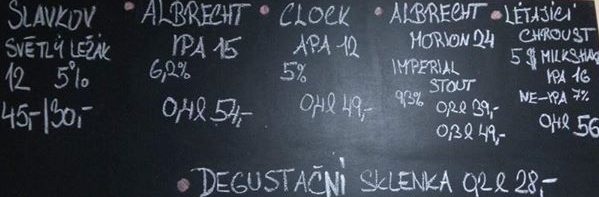 SLAVKOV
SVĚTLÝ LEŽÁK
12 5%
45,-/30,-
ALBRECHT
IPA 15
6,2%
0,4l 54,-
CLOCK
APA 12
5%
0,4l 49,-
ALBRECHT
MORION 24
IMPERIAL
STOUT
9,3% 0,2l 39,-
0,3l 49,-
LÉTAJÍCÍ
CHROUST
5$ MILKSHAK
IPA 16
NE-IPA 7%
0,4l 56
DEGUSTAČNÍ SKLENKA 0,2l 28,-